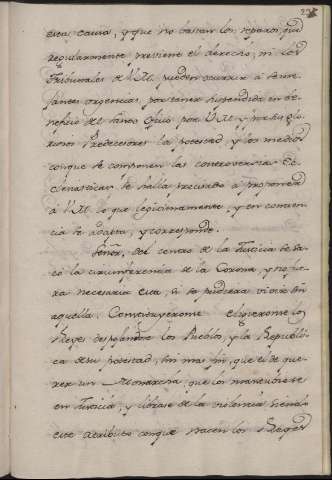 esta causa, y que no bastan los reparos, que
regularmente previene el derecho, ni los
Tribunales de V.M. pueden ocurrir à seme-
jantes urgencias, por tener suspendida en be-
neficio del santo Oficio por V.M. y
riosos Predecesores la potestad, y los medios
con que se componen las controversias Ec-
clesiasticas se halla precisado à proponer
à V.M. lo que legitimamente, y en concien-
cia se adapta, y corresponde.
Señor, del centro de la Justicia se sa-
cò la circunferencia de la Corona, y no fue-
ra necesaria esta, si se pudiera vivir sin
aquella. Constituyeronse eligieronse los
Reyes despojandose los Pueblos, y la Republi-
ca de su potestad, sin mas fin, que el de que-
rer un Monarcha, que los mantubiese
en Justicia, y librase de la violencia siendo
este atributo con que nacen los Reyes